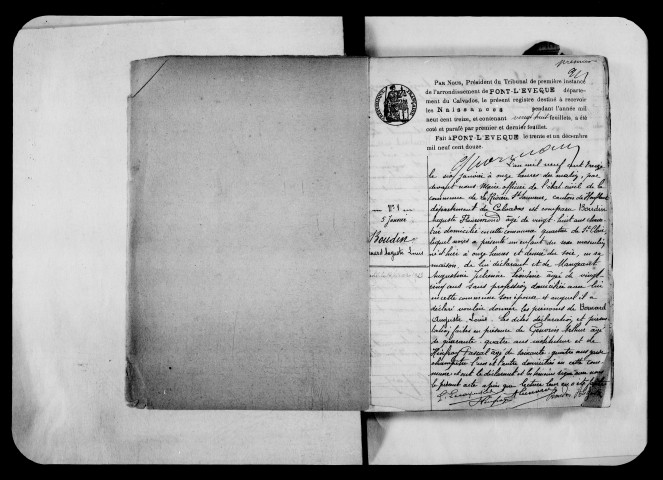 premier
Par Nous, Président du Tribunal de première instance
de l'arrondissement de PONT-L'EVEQUE départe-
ment du Calvados, le présent registre destiné à recevoir
les Naissances pendant l'année mil
neuf cent treize, et contenant vingt huit feuillets, a été
coté et parafé par premier et dernier feuillet.
Fait à PONT-L'EVEQUE le trente et un décembre
mil neuf cent douze.
N° 1
5 Janvier
Boudin
Bernard Auguste Louis
L'an mil neuf cent treize
le six janvier à onze heures du matin, par
devant nous Maire officier de l'état civil de la
commune de La Rivière St Sauveur, canton de Honfleur
département du Calvados est comparu Boudin
Auguste âgé de vingt huit ans
domicilié en cette commune quartier de St Clair,
lequel nous a présenté un enfant du sexe masculin
né hier à onze heures et demie du soir, en sa
maison, de lui déclarant et de Marguerite
Augustine âgée de vingt
cinq ans sans profession domiciliée avec lui
en cette commune son épouse et auquel il a
déclaré vouloir donner les prénoms de Bernard
Auguste Louis. Les dites déclaration et présen
tation faites en présence de Arthur âgé
de quarante quatre ans instituteur et de
Pascal âgé de soixante quatre ans garde
champêtre l'un et l'autre domiciliés en cette com
mune et ont le déclarant et les témoins signé avec nous
le présent acte après que lecture leur en a été faite